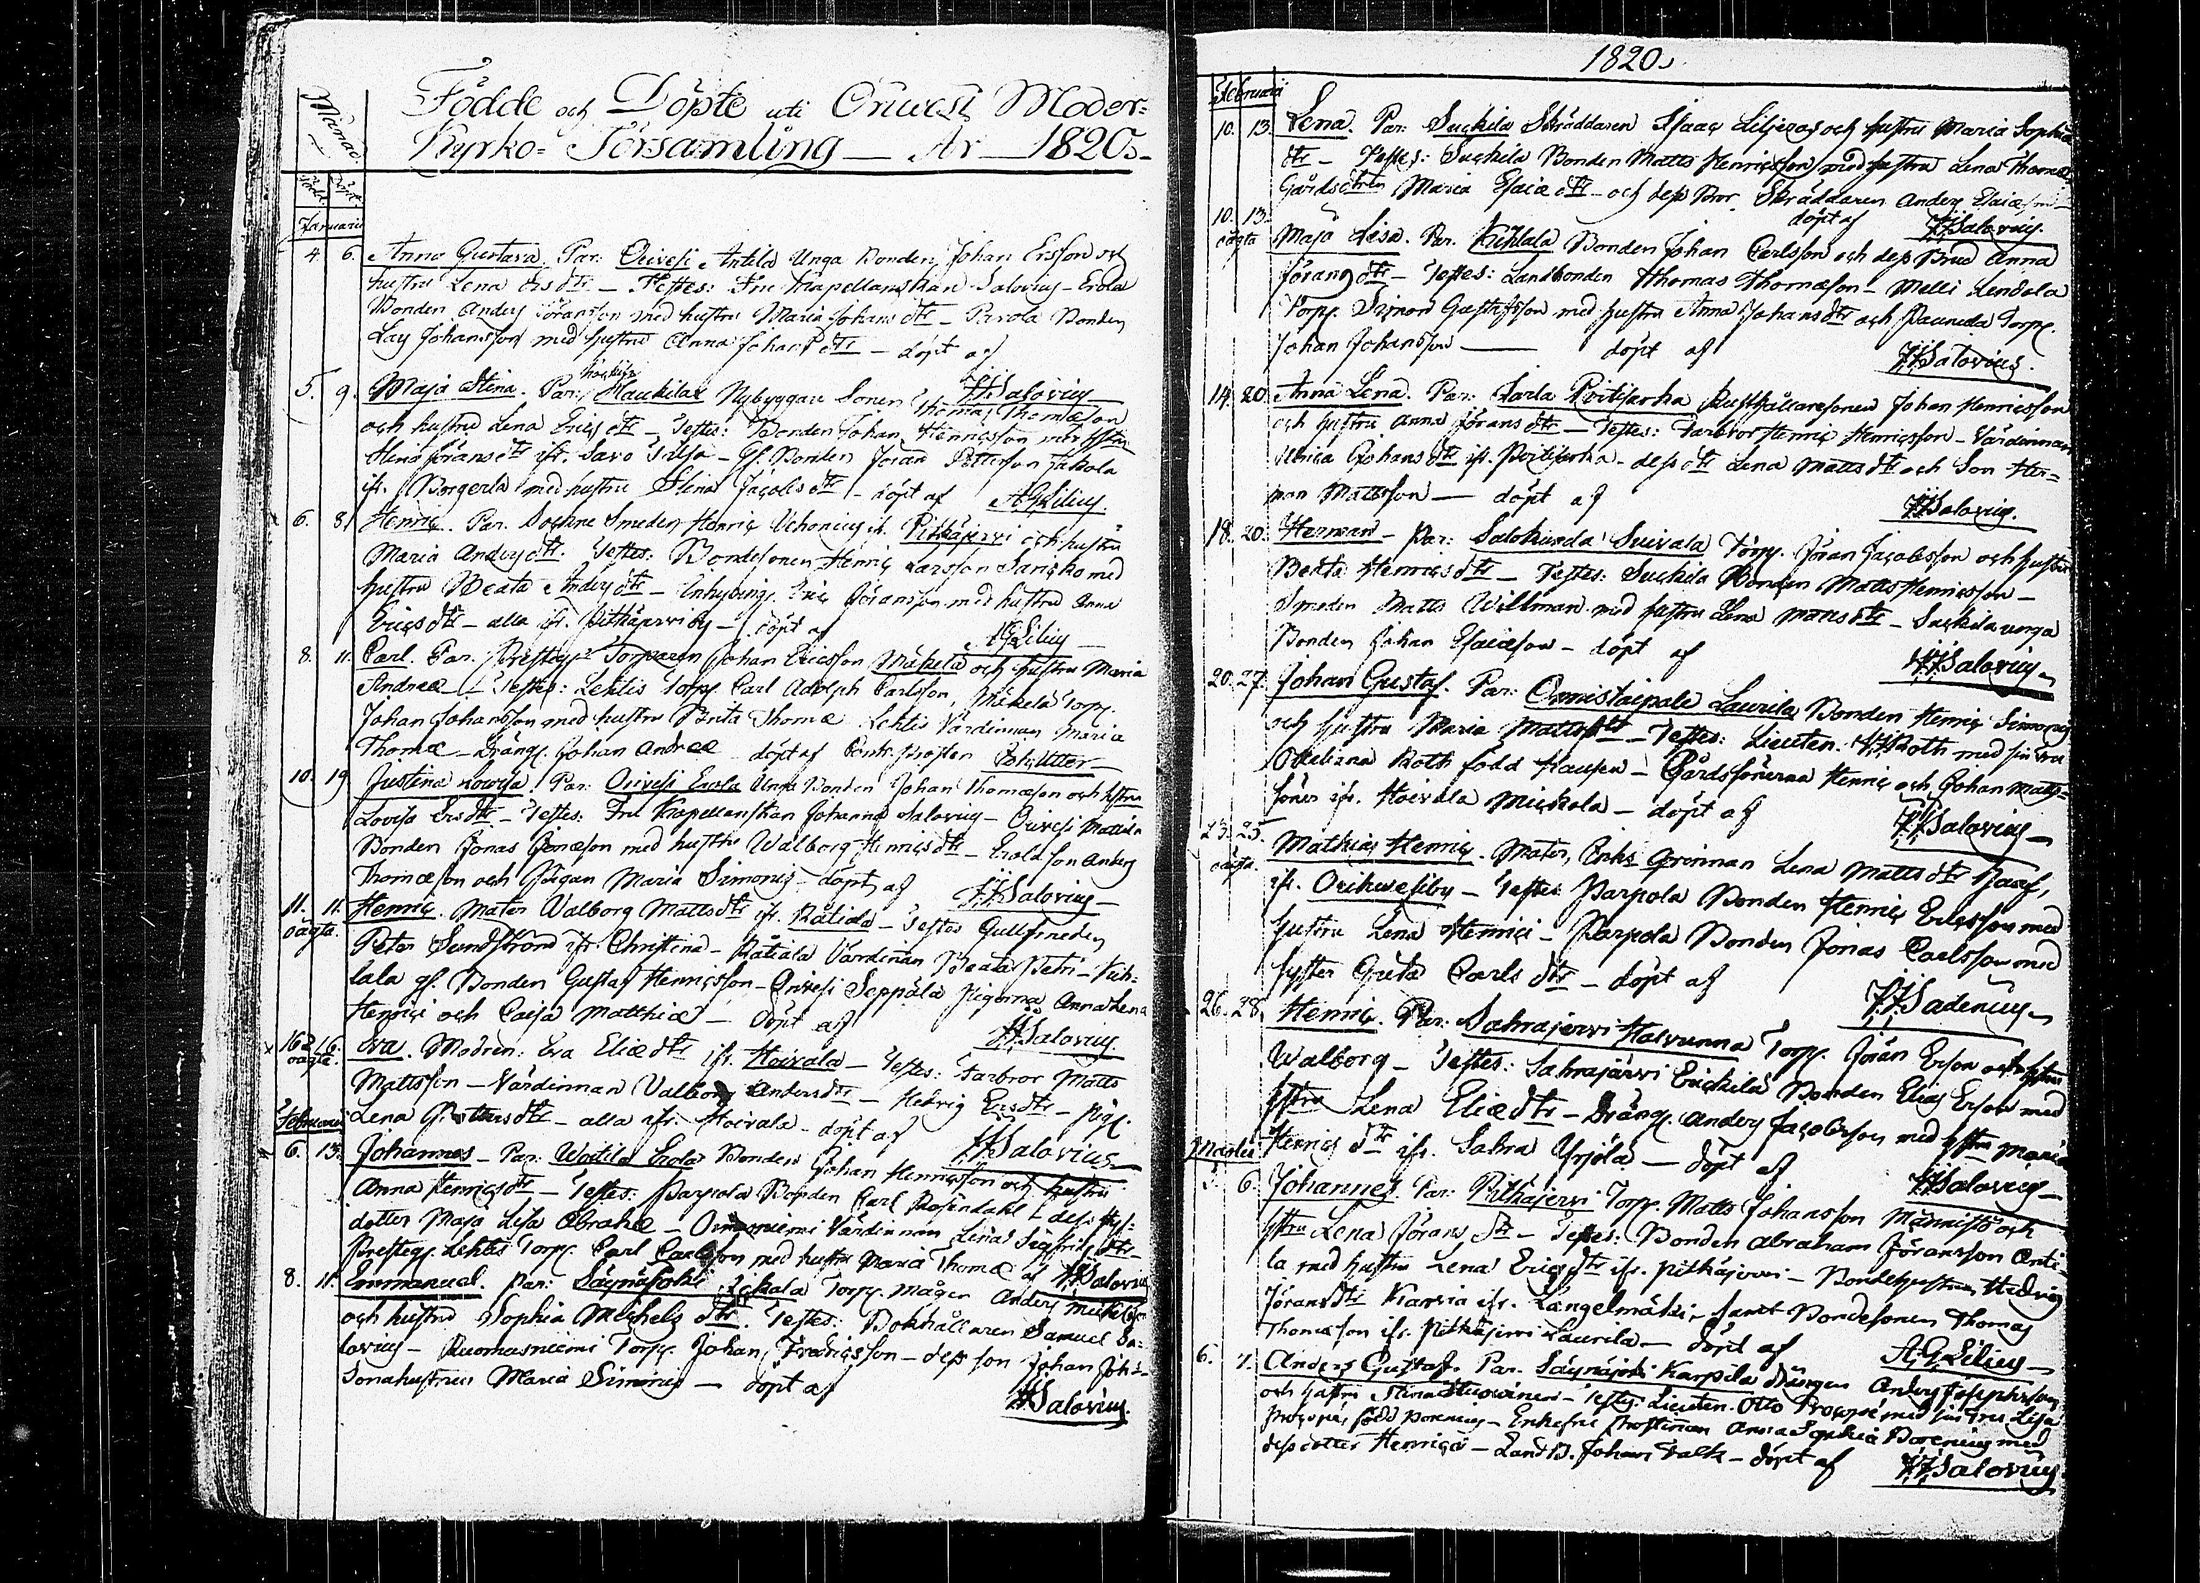 Månad
Födde och Döpte uti Oriwesi Moder=
Kyrko= Församling — År — 1820
Född Döpt
Januarii
4. 6. Anna Gustava. Par: Orivesi Antila Unga Bonden Johan Ersson och
hustru Lena Ersdtr — Testes: Fru Kapellanskan Salovius — Erola
Bonden Anders Jöransson med hustru Maria Johansdtr — Parola Bonden
Johansson med hustru Anna Johansdtr — döpt af
JJSalovius
5. 9. Maja Stina. Par: Haukilax Nybyggare Sonen Thomas Thomæson
och hustru Lena Ericsdtr — Testes: Bonden Johan Henricsson med hustru
Stina Jöransdtr ifr. Savo — Gl. Bonden Jöran Pettersson Jakola
ifr. Borgerla med hustru Stina Jacobsdtr — döpt af AGLilius.
6. 8. Henric. Par. Sockne Smeden Henric ifr. Pitkäjervi och hustru
Maria Andersdtr. Testes: Bondesonen Henric Larsson med
hustru Beata Andersdtr — Inhysing. Eric Jöransson med hustru Anna
Ericsdtr — alla ifr. Pitkäjervi by — döpt af
AGLilius
8. 11. Carl. Par. Prestegs Torparen Johan Ericsson Mäkelä och hustru Maria
Andreæ — Testes: Lehtis Torp. Carl Adolph Carlsson, Mäkelä Torp.
Johan Johansson med hustru Brita Thomæ Lehtis Värdinnan Maria
Thomæ — Dräng. Johan Andreæ döpt af Contr. Prosten
10. 19 Justina Lovisa. Par: Orivesi Erola Unga Bonden Johan Thomæson och hstru
Lovisa Ersdtr — Testes: Fru Kapellanskan Johanna Salovius — Orivesi Mattila
Bonden Jonas Jonæson med hustru Walborg Henricsdtr — Erola Son Anders
Thomæson och Pigan Maria Simonis — döpt af JJSalovius
11. 11. Henric. Mater Walborg Mattsdtr ifr. Rätiala — Testes Gullsmeden
oägta. Peter Sundström ifr. Christina — Rätiala Värdinnan Beata Petri — Kuh=
lala gl. Bonden Gustaf Henricsson — Orivesi Seppälä Pigorna Anna Lena
Henrici och Caisa Matthiæ — döpt af
JJSalovius.
16. 16. Eva. Modren: Eva Eliædtr ifr. Hoivala — Testes: Farbror Matts
oägta. Mattsson — Värdinnan Valborg Andersdtr — Hedvig Ersdtr — Pig.
Lena — alla ifr. Hoivala — döpt af
Februarii JJSalovius
6. 13. Johannes — Par: Wodila Erola Bonden Johan Henricsson och hustru
Anna Henricsdtr — Testes: Parpola Bonden Carl Rosendahl — dess
dotter Maja Lisa Abrahæ — Värdinnan Lena Sigfridsdtr —
Presteg. Lehtis Torp. Carl Carlsson med hustru Maria Thomæ af JJSalovius
8. 11. Emmanuel. Par: Säynäjoki Torp. mågen Anders
och hustru Sophia Michelsdtr. Testes: Bokhållaren Samuel Sa=
lovius — Ruomasniemi Torp. Johan Fredricsson — dess son Johan
Sonahustrun Maria Simonis — döpt af
JJSalovius.
1820.
Februarii
10. 13. Lena. Par: Suckila Skräddaren Isaac och hustru Maria Sophia
dtr — Testes: Suckila Bonden Matts Henricsson med hustru Lena Thomæ
Gårdsdtrn Maria Esaiædtr — och dess Bror Skräddaren Anders Elaiæson —
döpt af JJSalovius.
10. 13. Maja Lisa. Par. Kuhlala Bonden Johan Carlsson och dess Brud Anna
oägta Jöransdtr — Testes: Landbonden Thomas Thomæson — Melli Lendola
Torp. Simon Gustafsson med hustru Anna Johansdtr och Torp.
Johan Johansson — döpt af JJSalovius.
14. 20. Anna Lena. Par: Sarla Rusthållaresonen Johan Henricsson
och hustru Anna Jöransdtr — Testes: Farbror Henric Henricsson — Värdinnan
Ulrica Johansdtr ifr. — dess dtr Lena Mattsdtr och Son Her=
man Mattsson — döpt af JJSalovius.
18. 20. Herman — Par: Salokunda Suivala Torp. Jöran Jacobsson och hustru
Beata Henricsdtr — Testes: Suckila Bonden Matts Henricsson —
Smeden Matts Willman med hustru Lena Mattsdtr — Suckila unga
Bonden Johan Esaiæson — döpt af JJSalovius
20. 27. Johan Gustaf. Par: Onnistaipale Laurila Bonden Henric Simonis
och hustru Maria Mattsdtr — Testes: Lieuten. Roth med sin Fru
Roth född Hausen — Gårdssönerna Henric och Johan Matts=
söner ifr. Hoivala Mickola — döpt af JJSalovius
23. 25. Mathias Henric. Mater, Enke Qvinnan Lena Mattsdtr
oägta. ifr. Orihvesiby — Testes Parpola Bonden Henric Ericsson med
hustru Lena Henrici — Parpola Bonden Jonas Carlsson med
syster Greta Carlsdtr — döpt af
26. 28. Henric. Par: Sahrajervi Torp. Jöran Erson och hstru
Walborg — Testes: Sahrajärvi Erickilä Bonden Elias Erson med
hstru Lena Eliædtr — Dräng. Anders Jacobsson med hstru Maria
Martii Henricsdtr ifr. Sahra Yrjölä — döpt af
JJSalovius
5. 6. Johannes. Par: Pitkäjervi Torp. Matts Johansson Männistö och
hstru Lena Jöransdtr — Testes: Bonden Abraham Jöransson Anti=
la med hustru Lena Ericsdtr ifr. Pitkäjervi — Bondehustrun Hedvig
Jöransdtr ifr. Längelmäki, samt Bondesonen Thomas
Thomæson ifr. Pitkäjervi Laurila — döpt af AGLilius
6. 7. Anders Gustaf. Par. Säynäjoki Karpila Drängen Anders Josephsson
och hustru Stina — Testes: Lieuten. Otto med sin Fru Lisa
född — Enkefru Prostinnan Anna Sophia med
dess dotter Henrica — Johan Falk — döpt af JJSalovius